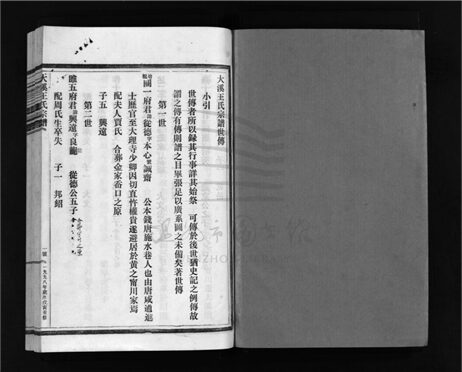 大溪王氏宗譜世傳
小引
世傳者所以錄其行事詳其始祭 可傳於後世猶史記之例傳故
譜之傳有傳則譜之目畢張足以廣系圖之未備矣著世傳
第一世
國一府君諱從德字本心號誠齋 公本錢唐施水巷人也由唐咸通進
士歷官至大理寺少卿因切直忤權貴遂避居於黃之甯川家焉
配夫人賈氏 合葬金家畓口之原
子五 興遠
第二世
贍五府君諱興遠字良 從德公五子
配周氏生卒失 子一 邦紹
大溪王氏宗譜
一號 一九九八年歲次戊寅重修